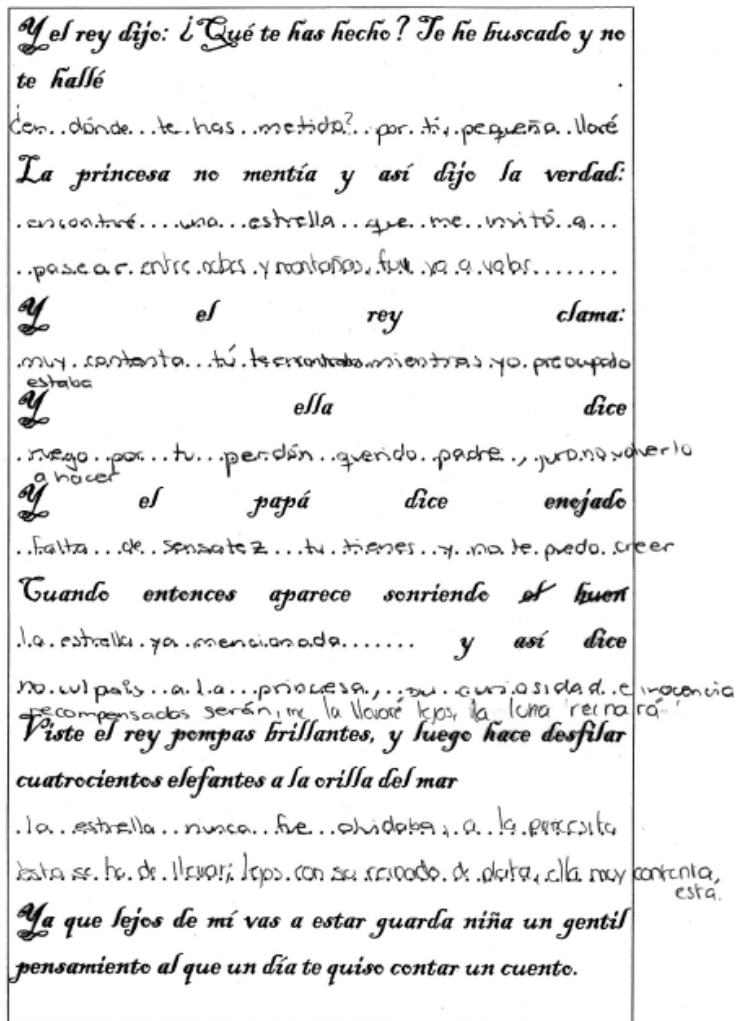 Y el rey dijo: ¿Qué te has hecho? Te he buscado y no
te hallé .
¿en..dónde...te..has..metido?..por.ti,.pequeña..lloré
La princesa no mentía y así dijo la verdad:
.encontré....una...estrella...que..me..invitó..a...
..pasear.entre.nubes.y montañas, fui.yo.a.volar.........
Y el rey clama:
.muy.contenta...tú.te encontrabas.mientras.yo.preocupado
estaba
Y ella dice
.ruego..por...tu..perdón..querido..padre..,.juro.no volverlo
a hacer
Y el papá dice enojado
..Falta...de..sensatez...tu.tienes..y.no.te.puedo.creer
Cuando entonces aparece sonriendo el buen
.la.estrella.ya.mencionada....... y así dice
no.culpáis..a.la...princesa,..su.curiosidad..e inocencia
recompensados serán, me la llevaré lejos, la luna reinará
Viste el rey pompas brillantes, y luego hace desfilar
cuatrocientos elefantes a la orilla del mar
.la..estrella..nunca..fue..olvidaba,.a..la.princesita
esta se.ha.de.llevar; lejos.con su reinado.de.plata, ella muy contenta,
esta.
Ya que lejos de mí vas a estar guarda niña un gentil
pensamiento al que un día te quiso contar un cuento.